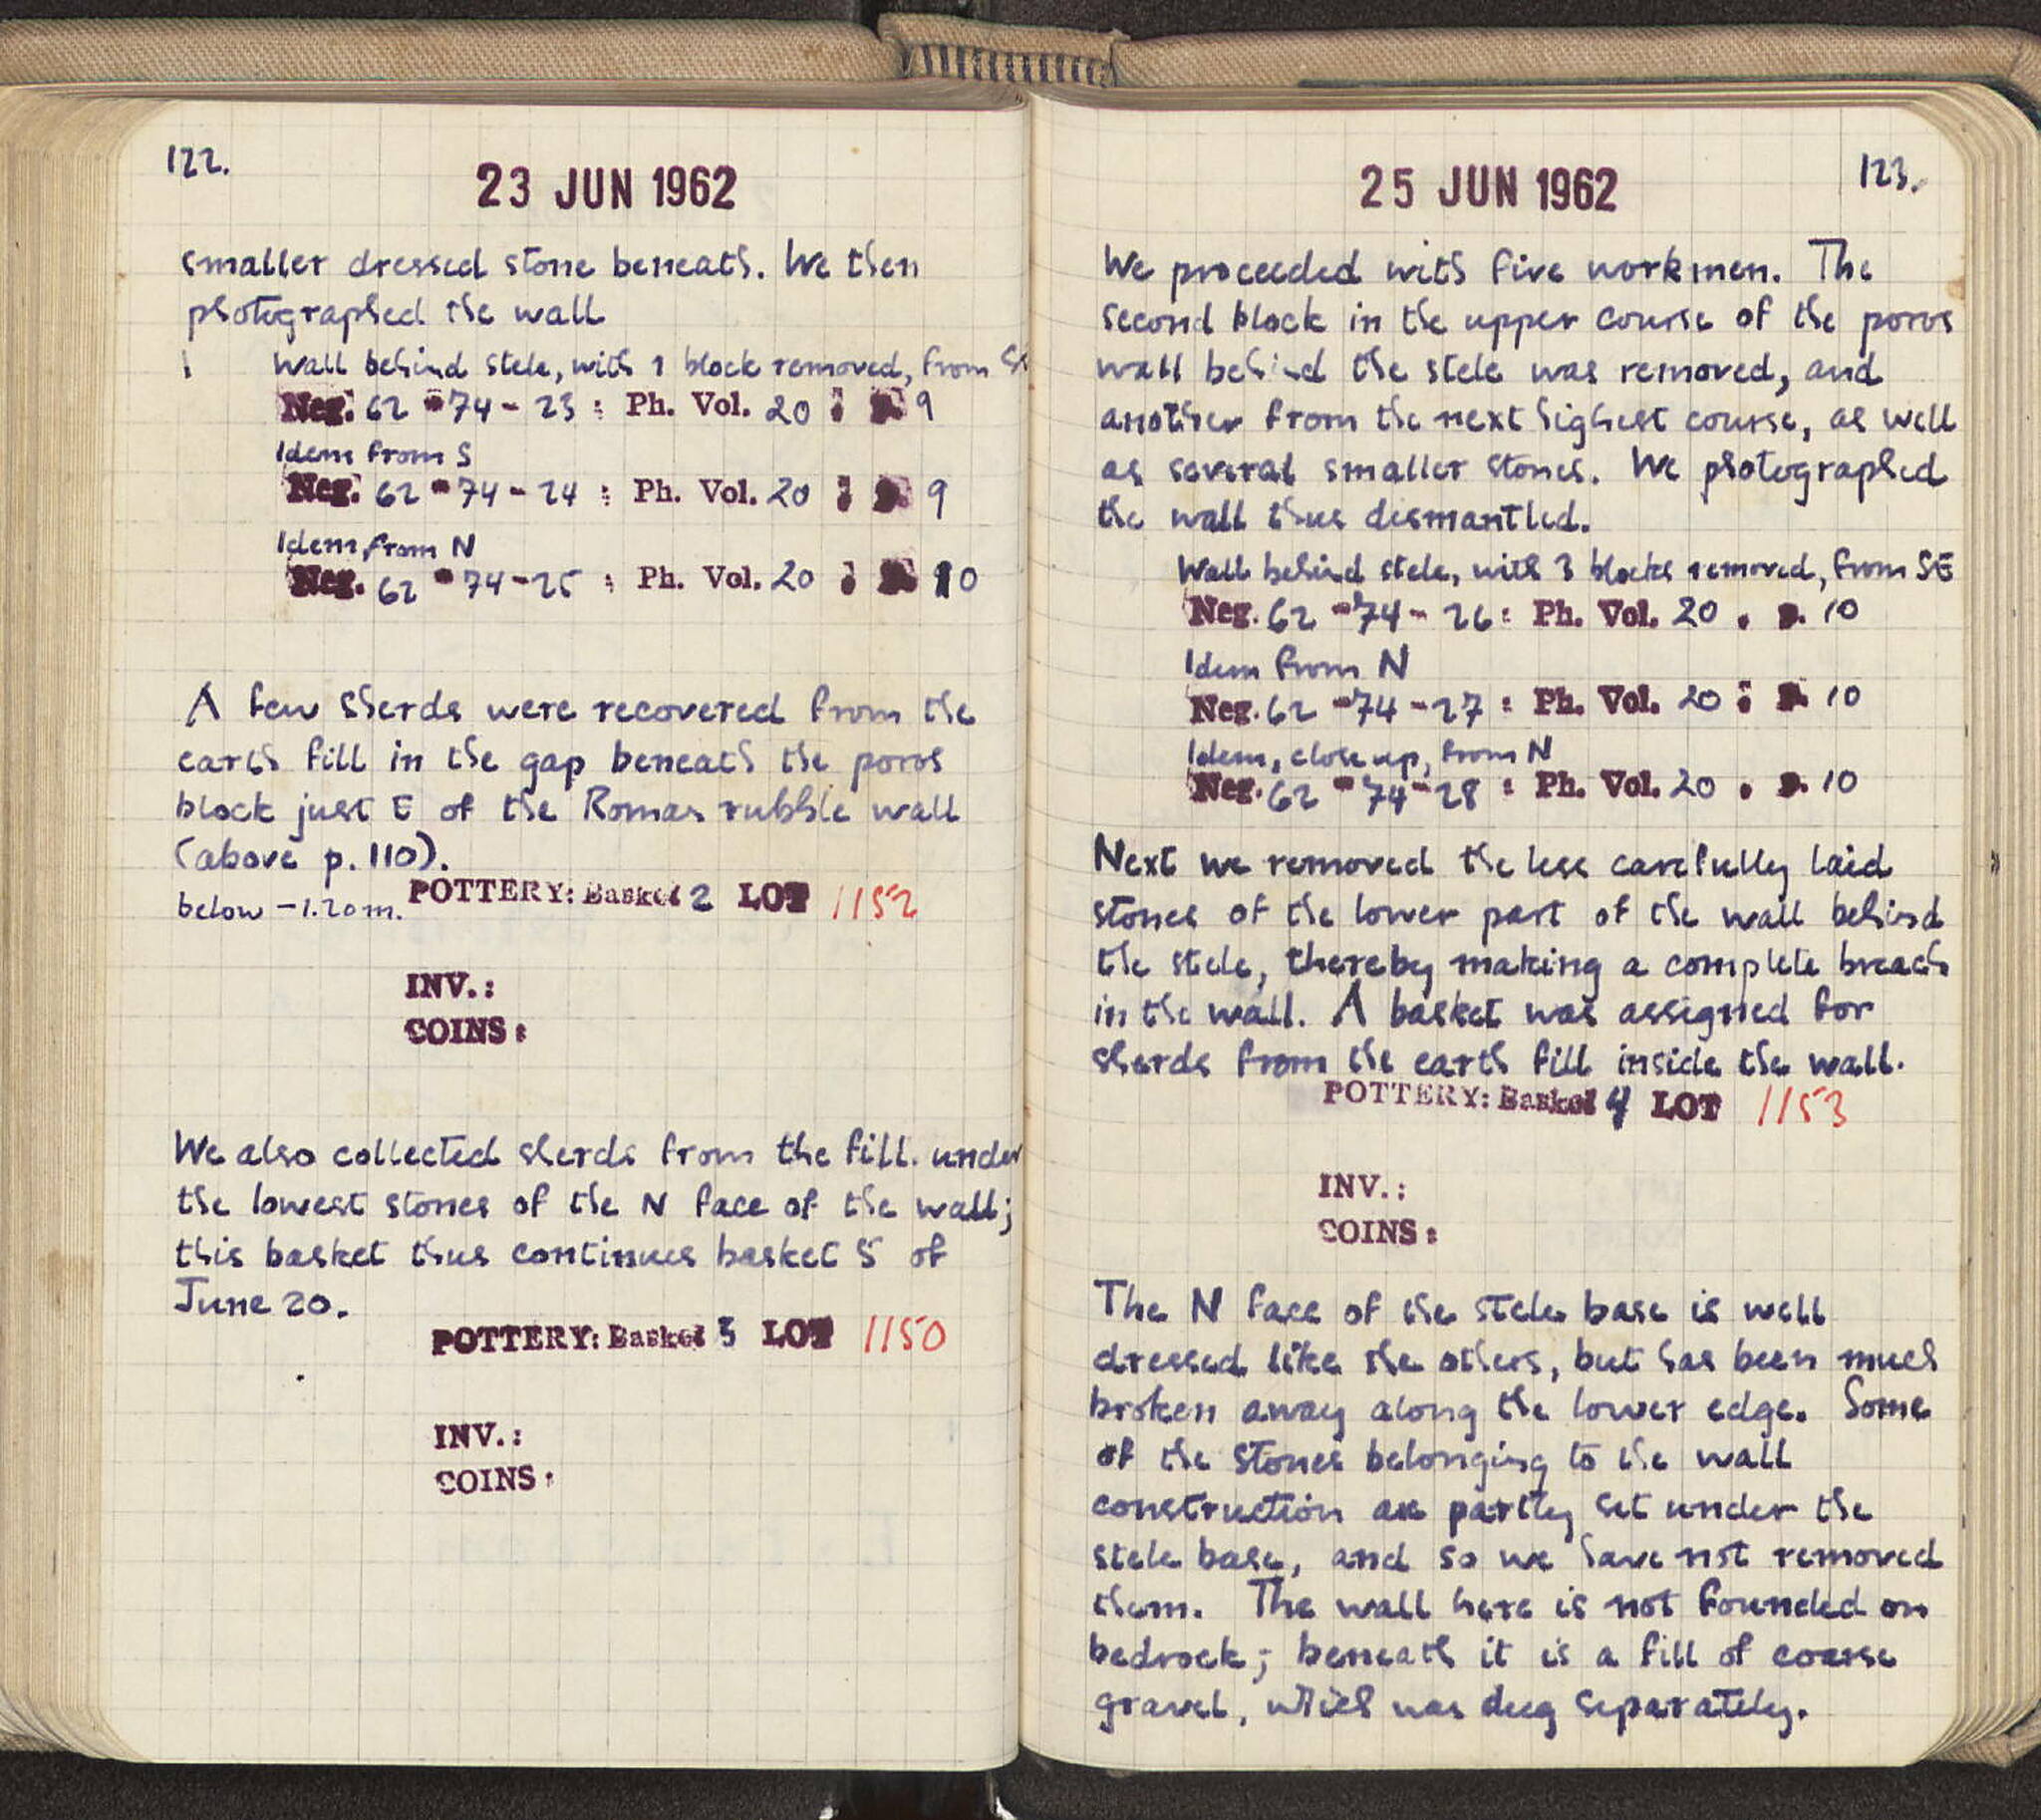 122.
23 JUN 1962
smaller dressed stone beneath. We then
photographed the wall
Wall behind stele, with 1 block removed, from
Neg. 62 - 74 - 23 : Ph. Vol. 20 : p. 9
Idem from S
Neg. 62 - 74 - 24 : Ph. Vol. 20 : p. 9
Idem, from N
Neg. 62 - 74 - 25 : Ph. Vol. 20 : p. 10
A few sherds were recovered from the
earth fill in the gap beneath the poros
block just E of the Roman rubble wall
(above p. 110).
below -1.20m. POTTERY: Basket 2 LOT 1152
INV.:
COINS:
We also collected sherds from the fill under
the lowest stones of the N face of the wall;
this basket thus continues basket 5 of
June 20.
POTTERY: Basket 3 LOT 1150
INV.:
COINS:
25 JUN 1962
123.
We proceeded with five workmen. The
second block in the upper course of the poros
wall behind the stele was removed, and
another from the next highest course, as well
as several smaller stones. We photographed
the wall thus dismantled.
Wall behind stele, with 3 blocks removed, from SE
Neg. 62 - 74 - 26 : Ph. Vol. 20 : p. 10
Idem from N
Neg. 62 - 74 - 27 : Ph. Vol. 20 : p. 10
Idem, close up, from N
Neg. 62 - 74 - 28 : Ph. Vol. 20 : p. 10
Next we removed the less carefully laid
stones of the lower part of the wall behind
the stele, thereby making a complete breach
in the wall. A basket was assigned for
sherds from the earth fill inside the wall.
POTTERY: Basket 4 LOT 1153
INV.:
COINS:
The N face of the stele base is well
dressed like the others, but has been much
broken away along the lower edge. Some
of the stones belonging to the wall
construction are partly set under the
stele base, and so we have not removed
them. The wall here is not founded on
bedrock; beneath it is a fill of coarse
gravel, which was dug separately.